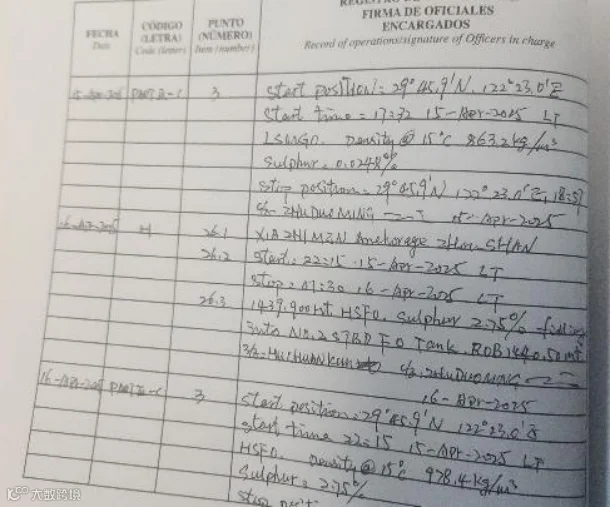 FIRMA DE OFICIALES
ENCARGADOS
Record of operations/signature of Officers in charge
FECHA
Date
CÓDIGO
(LETRA)
Code (letter)
PUNTO
(NÚMERO)
Item (number)
15-Apr-2025 PART II-C 3 start position: 29°45.9'N, 122°23.0'E
Start time = 17:32 15-Apr-2025 LT
LSMGO. Density@15°C 863.2kg/m³
Sulphur: 0.0248%
stop position: 29°45.9'N 122°23.0'E,
c/e ZHU DUO MING 15-Apr-2025
16-Apr-2025 H 26.1 XIA ZHI MEN Anchorage ZHOU SHAN
26.2 start: 22:15 15-Apr-2025 LT
stop: 16-Apr-2025 LT
26.3 1439.900mt HSFO. sulphur 2.75%
into No.2 STBD FO Tank. ROB 1440.50mt
3/E: c/e. ZHU DUO MING
16-Apr-2025
16-Apr-2025 PART II-C 3 start position: 29°45.9'N 122°23.0'E
start time 22:15 15-Apr-2025 LT
HSFO. Density@15°C 978.4kg/m³
Sulphur: 2.75%
stop
大数跨境